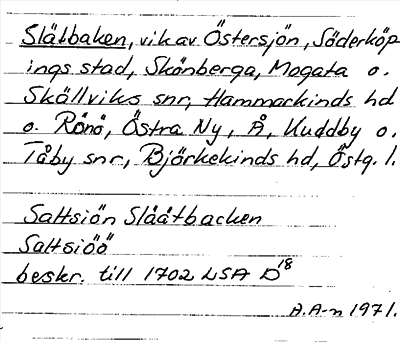 Slätbaken, vik av Östersjön, Söderköp
ings stad, Skönberga, Mogata o.
Skällviks snr, Hammarkinds hd
o. Rönö, Östra Ny, Å, Kuddby o.
Tåby snr, Björkekinds hd, Östg. l.
Saltsiön Slåätbacken
Saltsiöö
beskr. till 1702 LSA D18
A.A-n 1971.